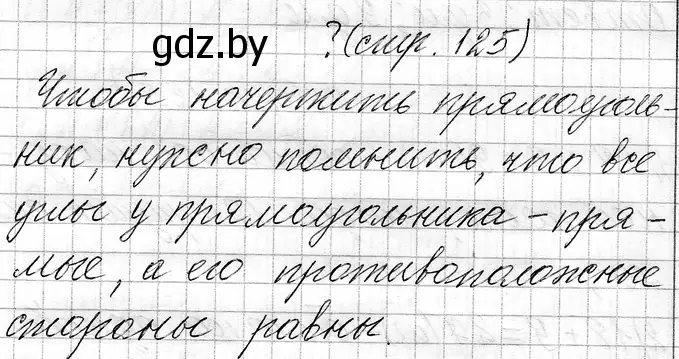 gdz.by ?(стр. 125)
Чтобы начертить прямоуголь-
ник, нужно помнить, что все
углы у прямоугольника - пря-
мые, а его противоположные
стороны равны.